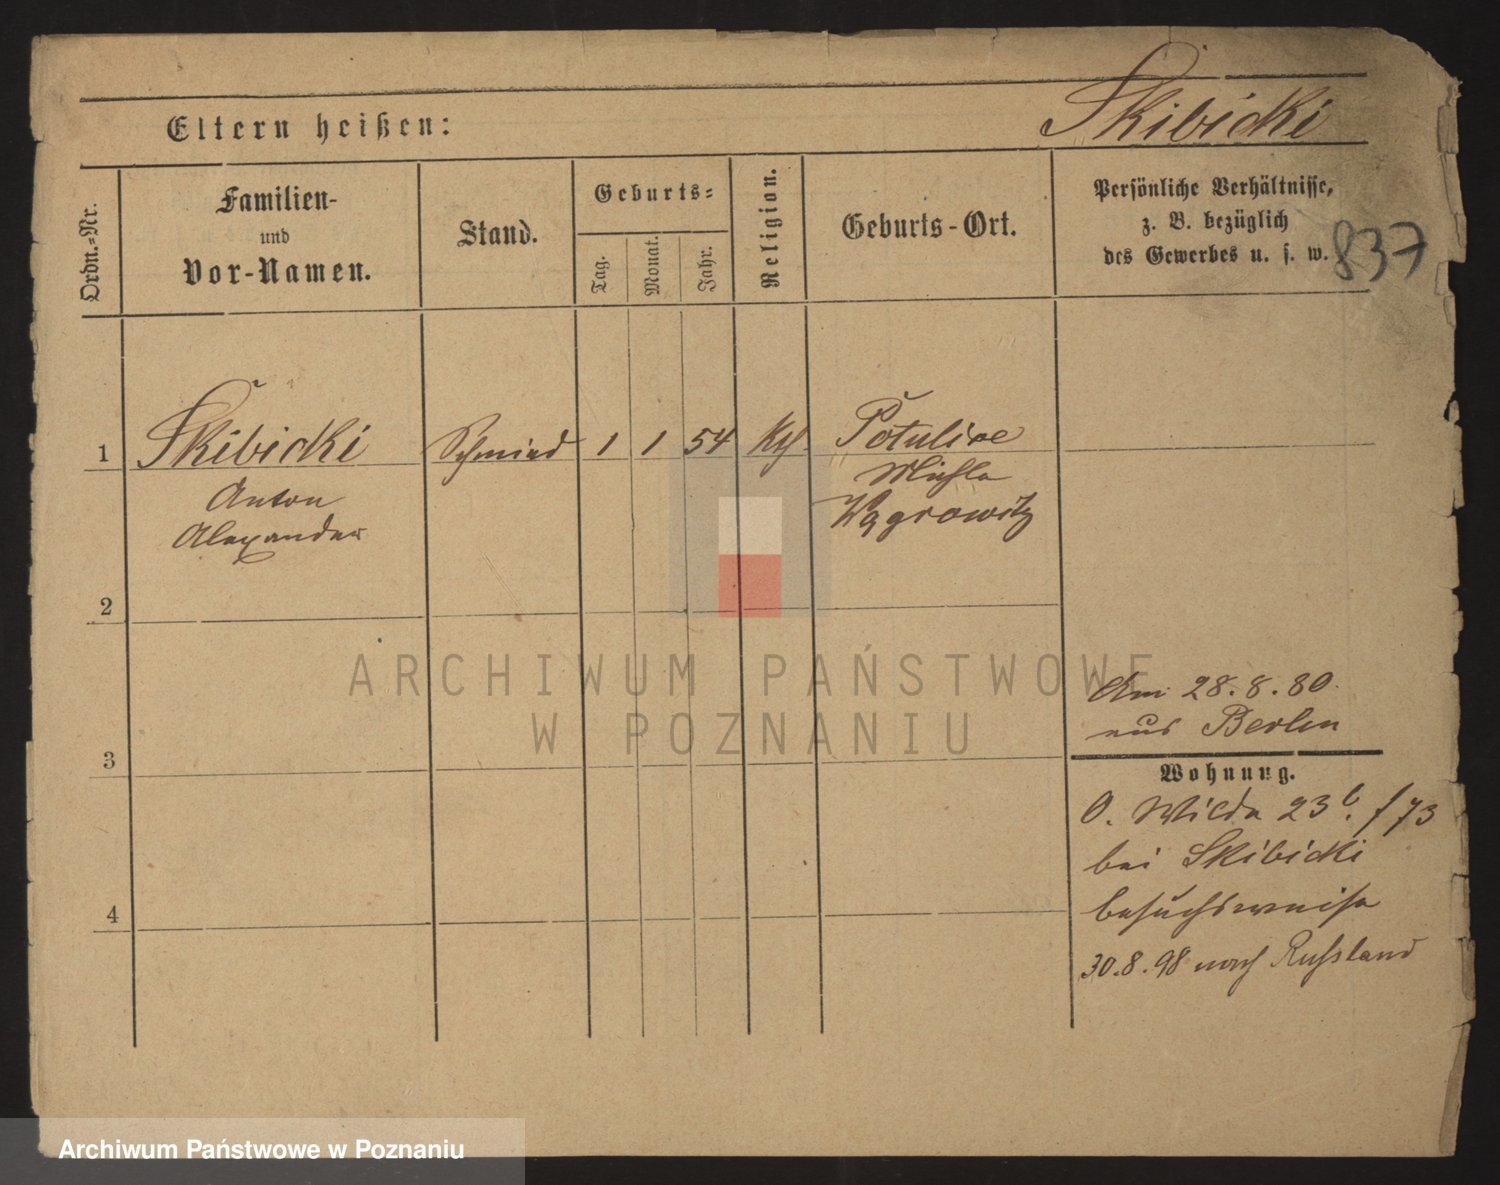 Skibicki
Eltern heißen:
Ordn.=Nr.
Familien-
und
Vor-Namen.
Stand.
Geburts=
Tag.
Monat.
Jahr.
Religion.
Geburts-Ort.
Persönliche Verhältnisse,
z. B. bezüglich
des Gewerbes u. s. w.
837
1 Skibicki Schmied 1 1 54 Kth. Potulice
Anton
Alexander
Mühle
Wągrowitz
2
3
4
Am 28.8.80.
aus Berlin
Wohnung.
O. Wilda 23 b. f 73
bei Skibicki
besuchsweise
30.8.98 nach Russland
ARCHIWUM PAŃSTWOWE
W POZNANIU
Archiwum Państwowe w Poznaniu